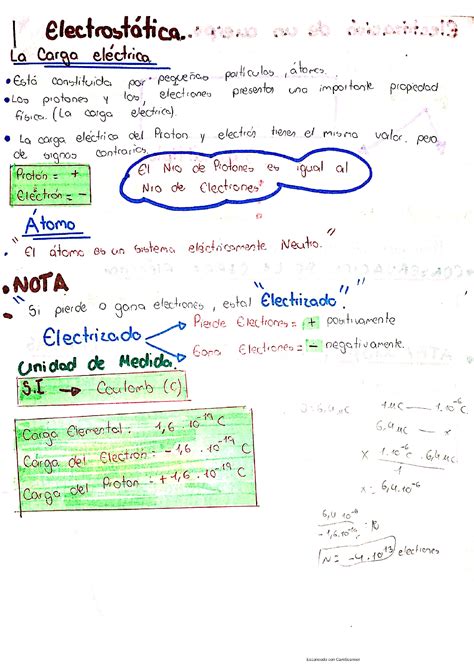 Electrostática.
La Carga eléctrica
• Está constituida por pequeñas partículas, átomos.
• Los protones y los electrones presentan una importante propiedad
física. (La carga eléctrica).
• La carga eléctrica del Proton y electrón tienen el mismo valor, pero
de signos contrarios.
Protón = +
Electrón = -
El Nro de Protones es igual al
Nro de Electrones
Átomo
• El átomo es un sistema eléctricamente Neutro."
• NOTA
Si pierde o gana electrones, esta "Electrizado".
Electrizado
Pierde Electrones = + positivamente
Gana Electrones = - negativamente.
Unidad de Medida.
S.I → Coulomb (C)
Carga Elemental: 1,6 . 10⁻¹⁹ C
Carga del Electron: -1,6 . 10⁻¹⁹ C
Carga del Proton = +1,6 . 10⁻¹⁹ C
1 μC — 1.10⁻⁶ C
6,4 μC — x
x 1.10⁻⁶ C . 6,4 μC
1
x = 6,4.10⁻⁶
6,4 10⁻⁶
-1,6.10⁻¹⁹
N = -4.10¹³ electrones
Escaneado con CamScanner